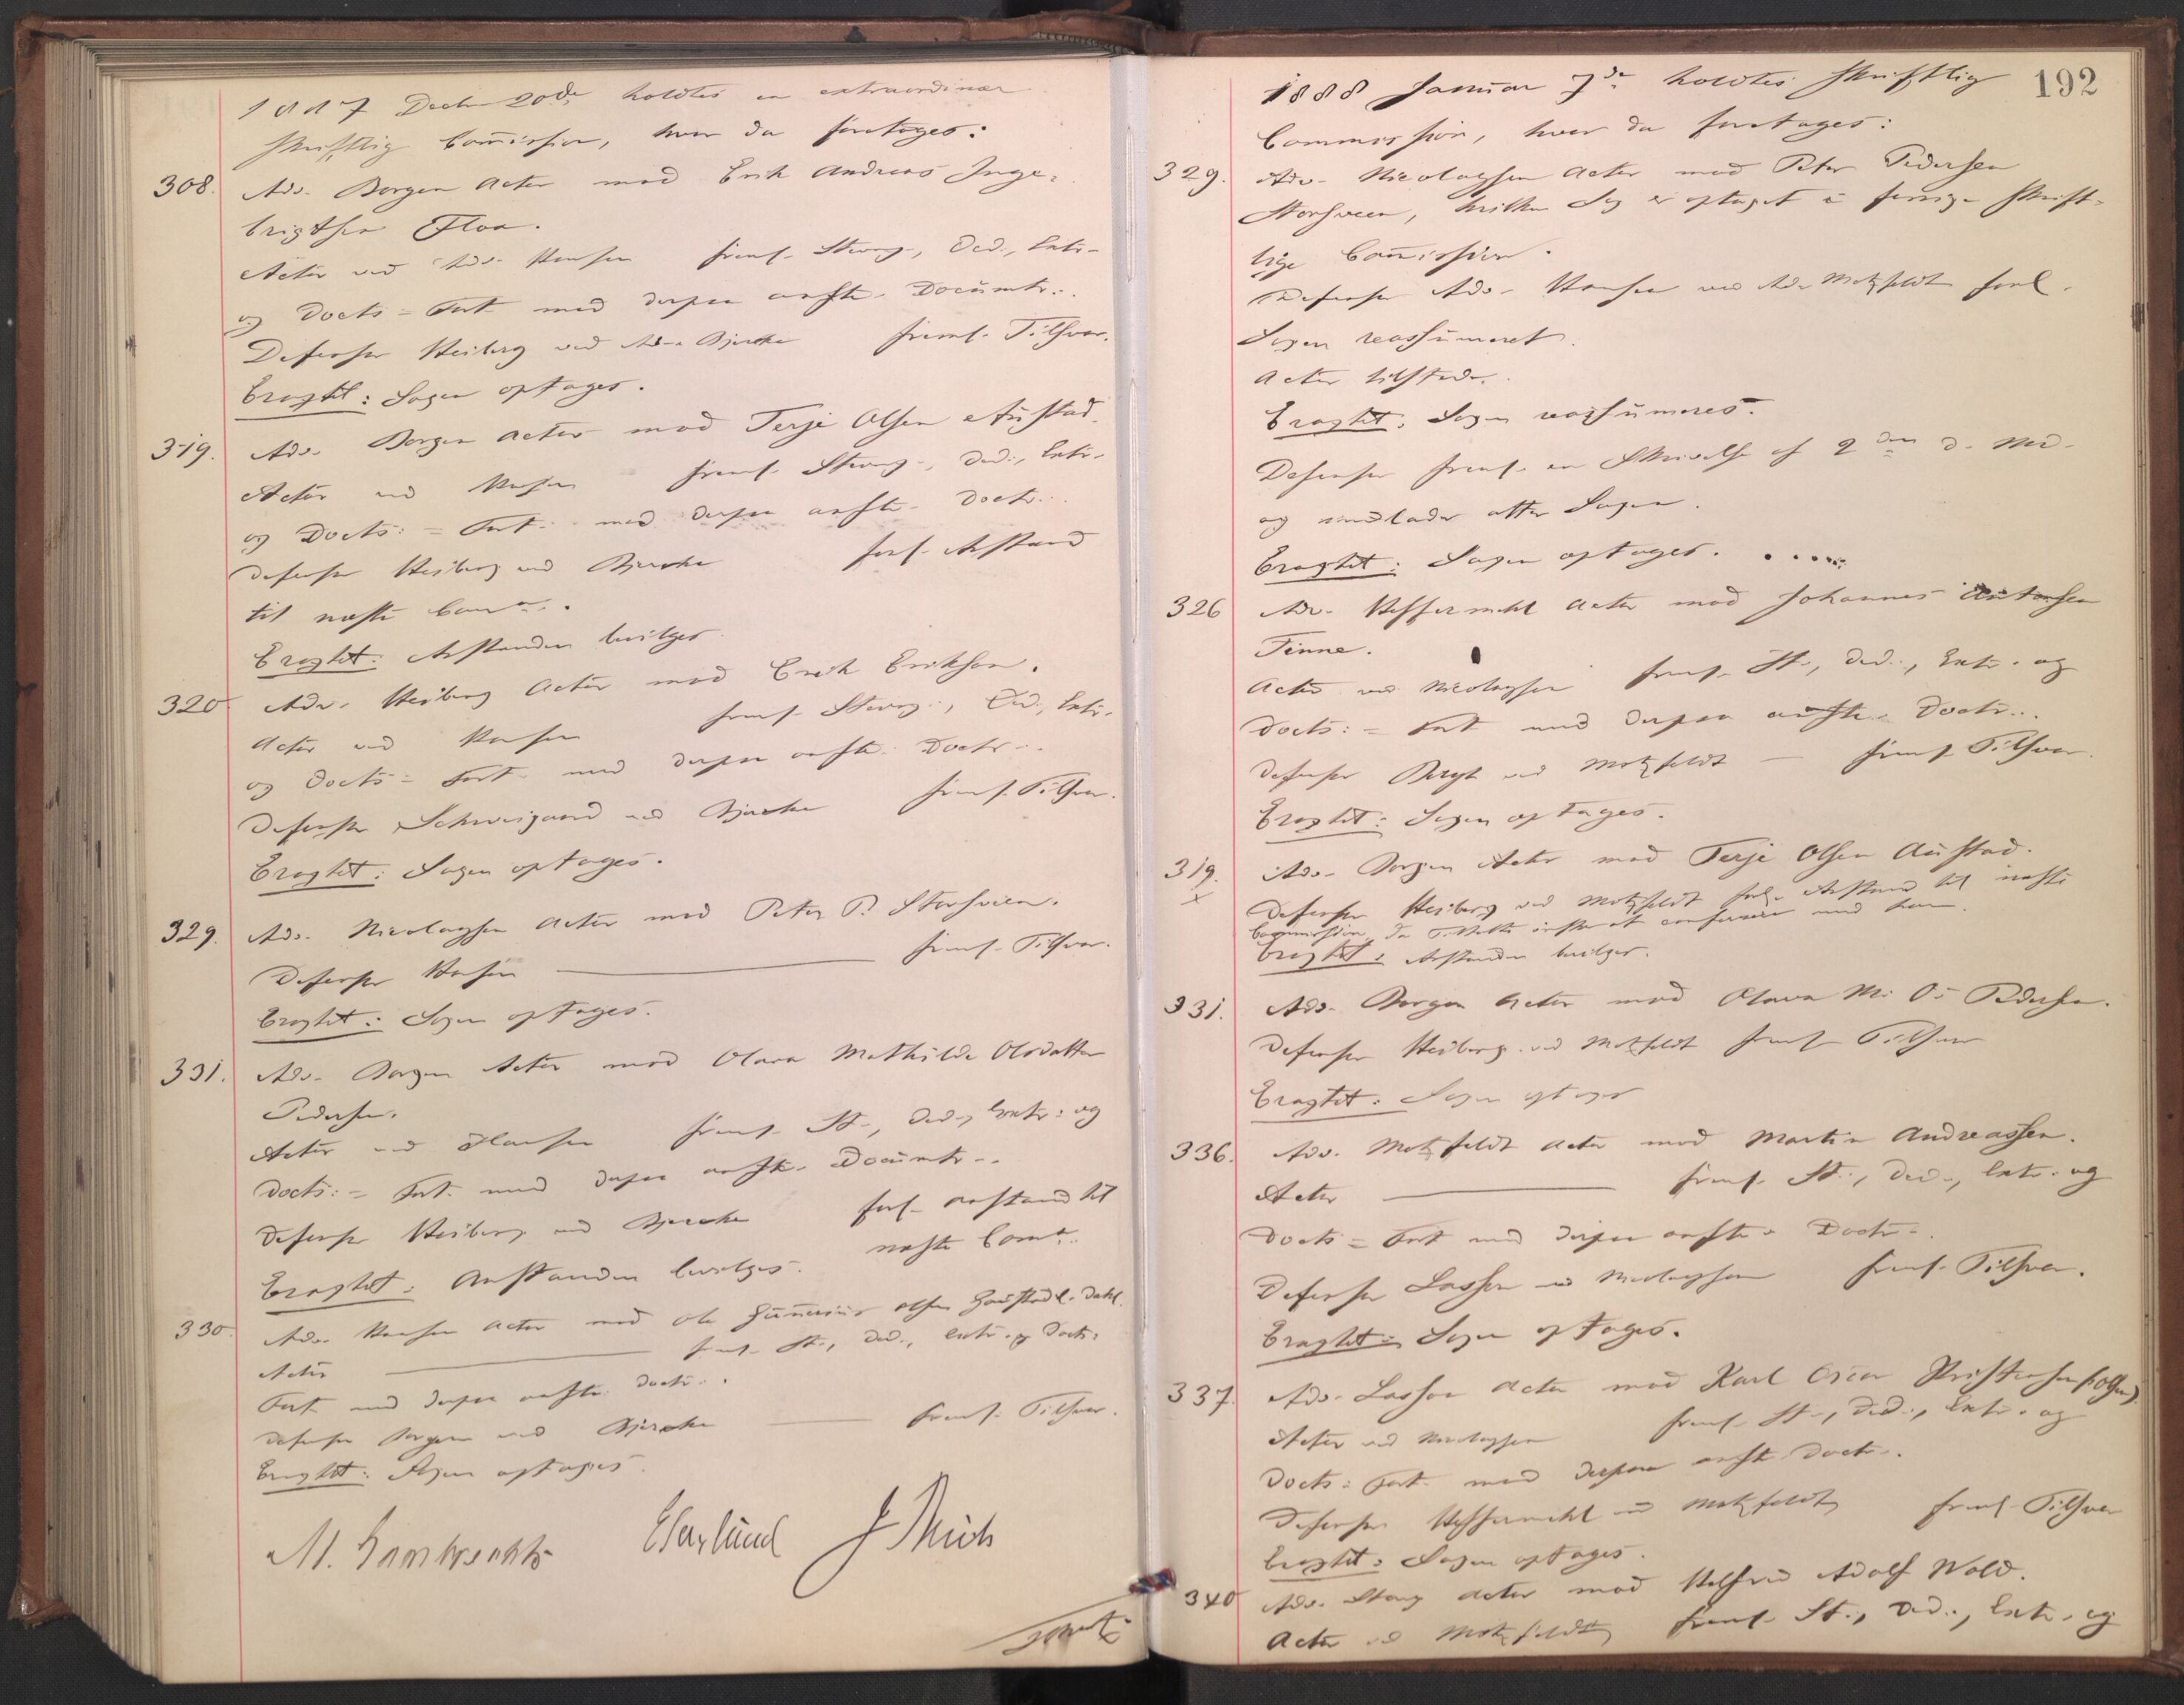 1887 Decbr 20de holdtes en extraordinær
skriftlig Com̄ission, hvor da foretages:
308. Adv. Borgen Actor mod Erik Andreas Inge-
brigtsen Floa.
Actor ved Adv. Hansen freml. Stevng., Ded., Extr.
og Docts: = Fort. med derpaa anfte. Documtr.
Defensor Heiberg ved Adv. Bjerke freml. Tilsvar.
Eragtet: Sagen optages.
319. Adv. Borgen Actor mod Terje Olsen Austad.
Actor ved Hansen freml. Stevng., Ded., Extr.
og Docts: = Fort. med derpaa anfte. Doctr.
Defensor Heiberg ved Bjerke forl. Anstand
til næste Comn.
Eragtet: Anstanden bevilges
320. Adv. Heiberg Actor mod Erik Eriksen.
Actor ved Hansen freml. Stevng., Ded., Extr.
og Docts: Fort. med derpaa anfte. Doctr.
Defensor Schweigaard ved Bjerke freml. Tilsvar.
Eragtet: Sagen optages.
329. Adv. Nicolaysen Actor mod Peter P. Storsveen.
Defensor Hansen freml. Tilsvar.
Eragtet: Sagen optages.
331. Adv. Borgen Actor mod Olava Mathilde Olsdatter
Pedersen.
Actor ved Hansen freml. St., Ded., Extr. og
Docts: = Fort. med derpaa anfte. Documtr.
Defensor Heiberg ved Bjerke forl. Anstand til
næste Comn.
Eragtet: Anstanden bevilges.
330. Adv. Hansen Actor mod Ole Gun̄erius Olsen Dahl.
Actor freml. St., Ded., Extr. og Docts:
Fort. med derpaa anfte. Doctr.
Defensor Borgen ved Bjerke freml. Tilsvar.
Eragtet: Sagen optages.
M. Lambrechts J Thiis
192
1888 Januar 7de holdtes skriftlig
Commission, hvor da foretages:
329. Adv. Nicolaysen Actor mod Peter Pedersen
Storsveen, hvilken Sag er optaget i forrige skrift-
lige Com̄ission.
Defensor Adv. Hansen ved Adv. Motzfeldt forl.
Sagen reassumeret.
Actor tilstede.
Eragtet: Sagen reassumeres.
Defensor freml. en Skrivelse af 2den d. Md.
og indlader atter Sagen.
Eragtet: Sagen optages.
326 Adv. Heffermehl Actor mod Johannes Antonsen
Finne.
Actor ved Nicolaysen freml. St., Ded., Extr. og
Docts: = Fort. med derpaa anfte. Doctr.
Defensor Bergh ved Motzfeldt — freml. Tilsvar.
Eragtet: Sagen optages.
319. Adv. Borgen Actor mod Terje Olsen Austad.
Defensor Heiberg ved Motzfeldt forl. Anstand til næste
Commission, da Tiltalte ønsker at conferere med ham.
Eragtet: Anstanden bevilges.
331. Adv. Borgen Actor mod Olava M. O. Pedersen.
Defensor Heiberg ved Motzfeldt freml. Tilsvar
Eragtet: Sagen optages
336. Adv. Motzfeldt Actor mod Martin Andreassen.
Actor freml. St., Ded., Extr. og
Docts = Fort. med derpaa anfte. Doctr.
Defensor Lasson ved Nicolaysen freml. Tilsvar.
Eragtet: Sagen optages.
337. Adv. Lasson Actor mod Karl Oscar Kristensen
Actor ved Nicolaysen freml. St., Ded., Extr. og
Docts: Fort. med derpaa anfte Doctr.
Defensor Heffermehl ved Motzfeldt freml. Tilsvar
Eragtet: Sagen optages.
340 Adv. Stang Actor mod Adolf Wold.
Actor ved Motzfeldt freml. St., Ded., Extr. og